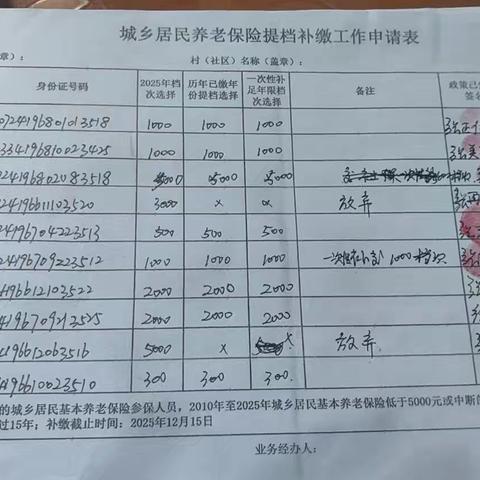 城乡居民养老保险提档补缴工作申请表
章）： 村（社区）名称（盖章）：
身份证号码 2025年档次选择 历年已缴年份提档选择 一次性补足年限档次选择 备注 政策已 签名
0724196801013518 1000 1000 1000
334196810023425 1000 1000 1000
24196802083518 5000 5000 5000
24196611103520 3000 × × 放弃
24196704223513 500 500 500
24196709223512 1000 1000 1000 一次性补缴1000档次
4196612103522 2000 2000 2000
4196709213525 2000 2000 2000
4196612063516 5000 × × 放弃
4196610023510 300 300 300
的城乡居民基本养老保险参保人员，2010年至2025年城乡居民基本养老保险低于5000元或中断的
过15年：补缴截止时间：2025年12月15日
业务经办人：